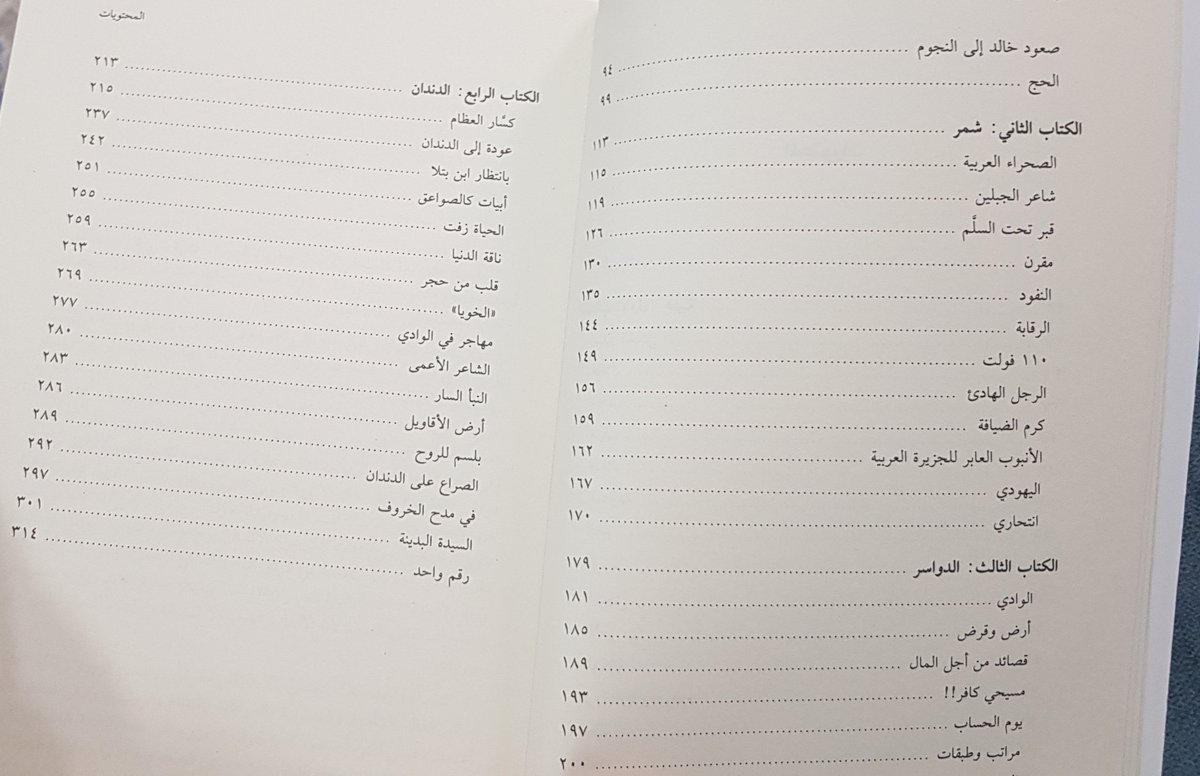 صعود خالد إلى النجوم ........ ٩٤
الحج ........ ٩٩
الكتاب الثاني: شمر ........ ١١٣
الصحراء العربية ........ ١١٥
شاعر الجبلين ........ ١١٩
قبر تحت السلَّم ........ ١٢٦
مقرن ........ ١٣٠
النفود ........ ١٣٥
الرقابة ........ ١٤٤
١١٠ فولت ........ ١٤٩
الرجل الهادئ ........ ١٥٦
كرم الضيافة ........ ١٥٩
الأنبوب العابر للجزيرة العربية ........ ١٦٢
اليهودي ........ ١٦٧
انتحاري ........ ١٧٠
الكتاب الثالث: الدواسر ........ ١٧٩
الوادي ........ ١٨١
أرض وقرض ........ ١٨٥
قصائد من أجل المال ........ ١٨٩
مسيحي كافر!! ........ ١٩٣
يوم الحساب ........ ١٩٧
مراتب وطبقات ........ ٢٠٠
المحتويات
الكتاب الرابع: الدندان ........ ٢١٣
كسَّار العظام ........ ٢١٥
عودة إلى الدندان ........ ٢٣٧
بانتظار ابن بتلا ........ ٢٤٢
أبيات كالصواعق ........ ٢٥١
الحياة زفت ........ ٢٥٥
ناقة الدنيا ........ ٢٥٩
قلب من حجر ........ ٢٦٣
«الخويا» ........ ٢٦٩
مهاجر في الوادي ........ ٢٧٧
الشاعر الأعمى ........ ٢٨٠
النبأ السار ........ ٢٨٣
أرض الأقاويل ........ ٢٨٦
بلسم للروح ........ ٢٨٩
الصراع على الدندان ........ ٢٩٢
في مدح الخروف ........ ٢٩٧
السيدة البدينة ........ ٣٠١
رقم واحد ........ ٣١٤